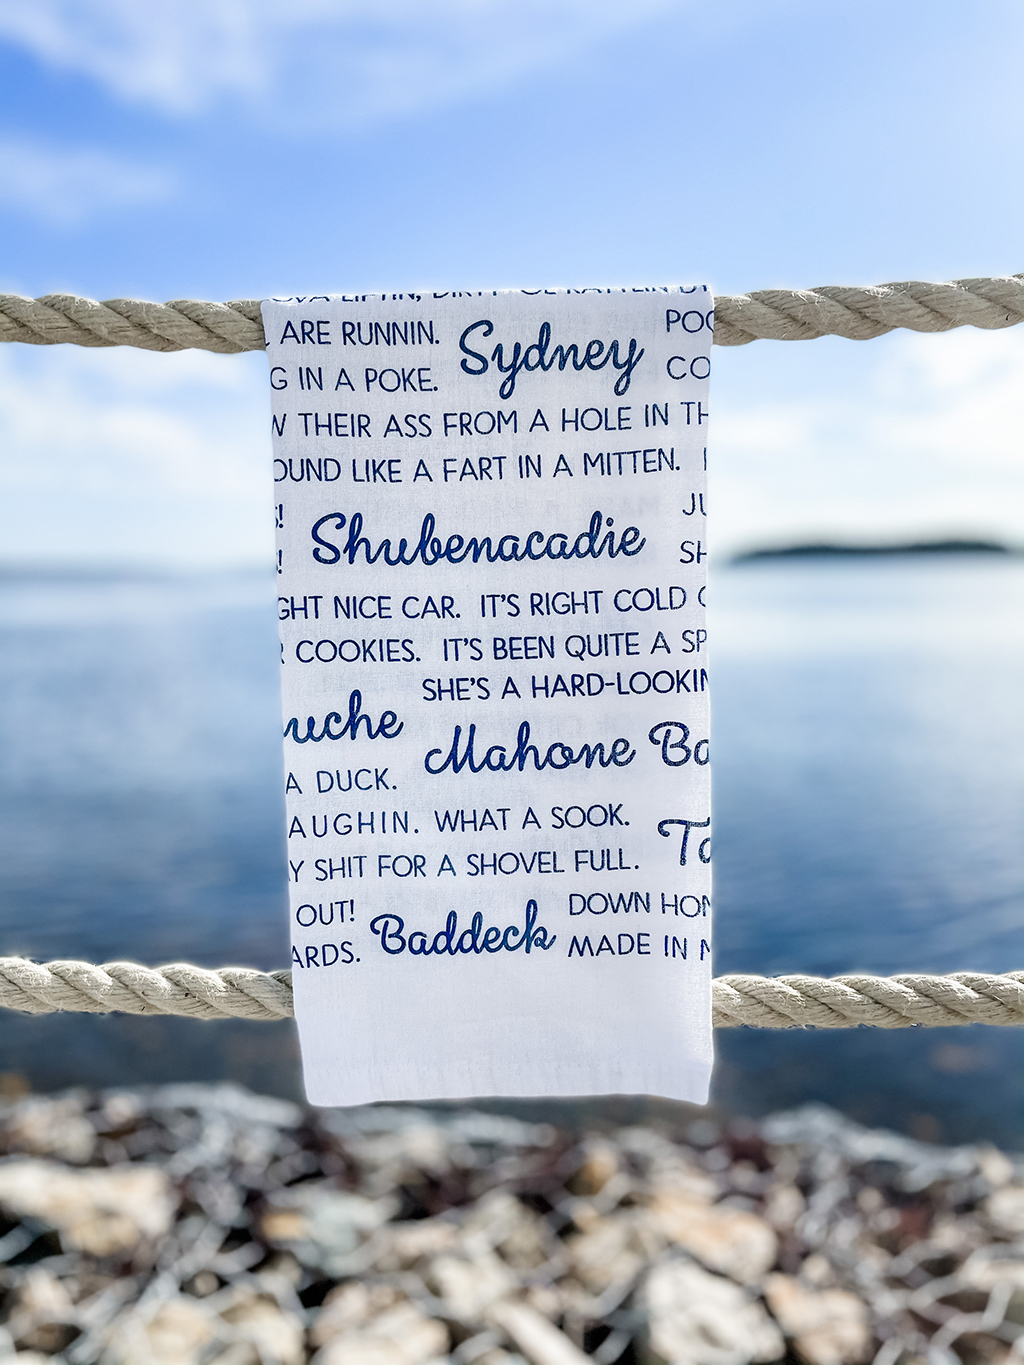 ARE RUNNIN. Sydney
IN A POKE.
THEIR ASS FROM A HOLE IN
LIKE A FART IN A MITTEN.
Shubenacadie
NICE CAR. IT'S RIGHT COLD
COOKIES. IT'S BEEN QUITE A
SHE'S A HARD-LOOKIN
Mahone
A DUCK.
AUGHIN. WHAT A SOOK.
SHIT FOR A SHOVEL FULL.
OUT! DOWN
Baddeck
ARDS. MADE IN